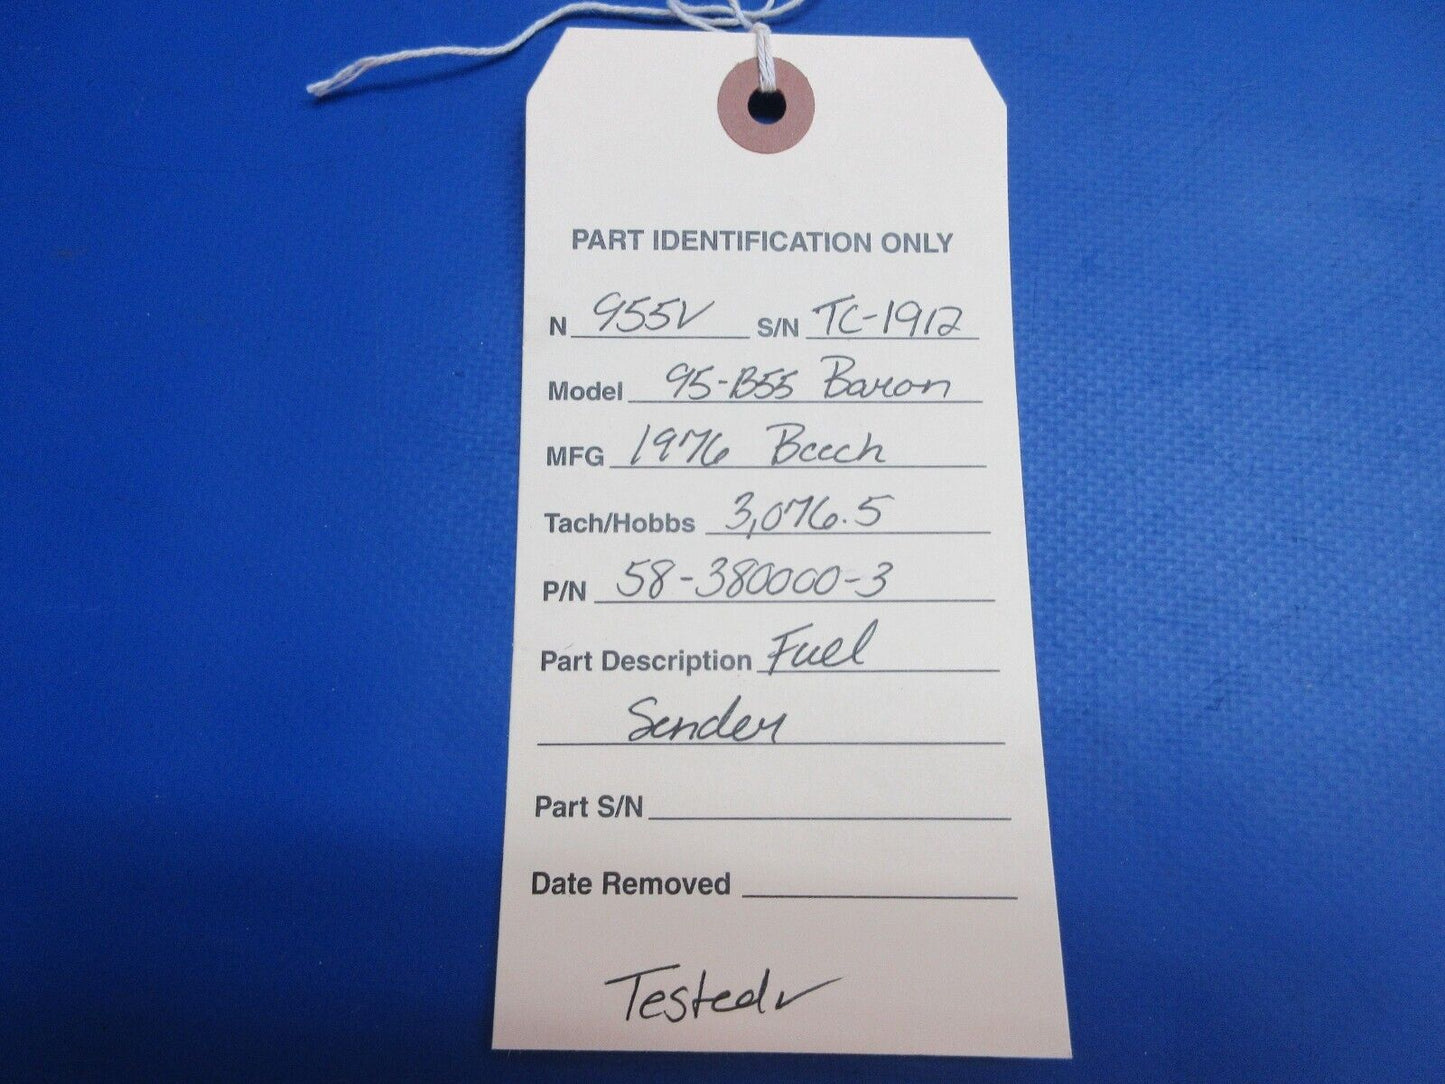 PART IDENTIFICATION ONLY
N 955V S/N TC-1912
Model 95-B55 Baron
MFG 1976 Beech
Tach/Hobbs 3,076.5
P/N 58-380000-3
Part Description Fuel
Sender
Part S/N
Date Removed
Tested ✓